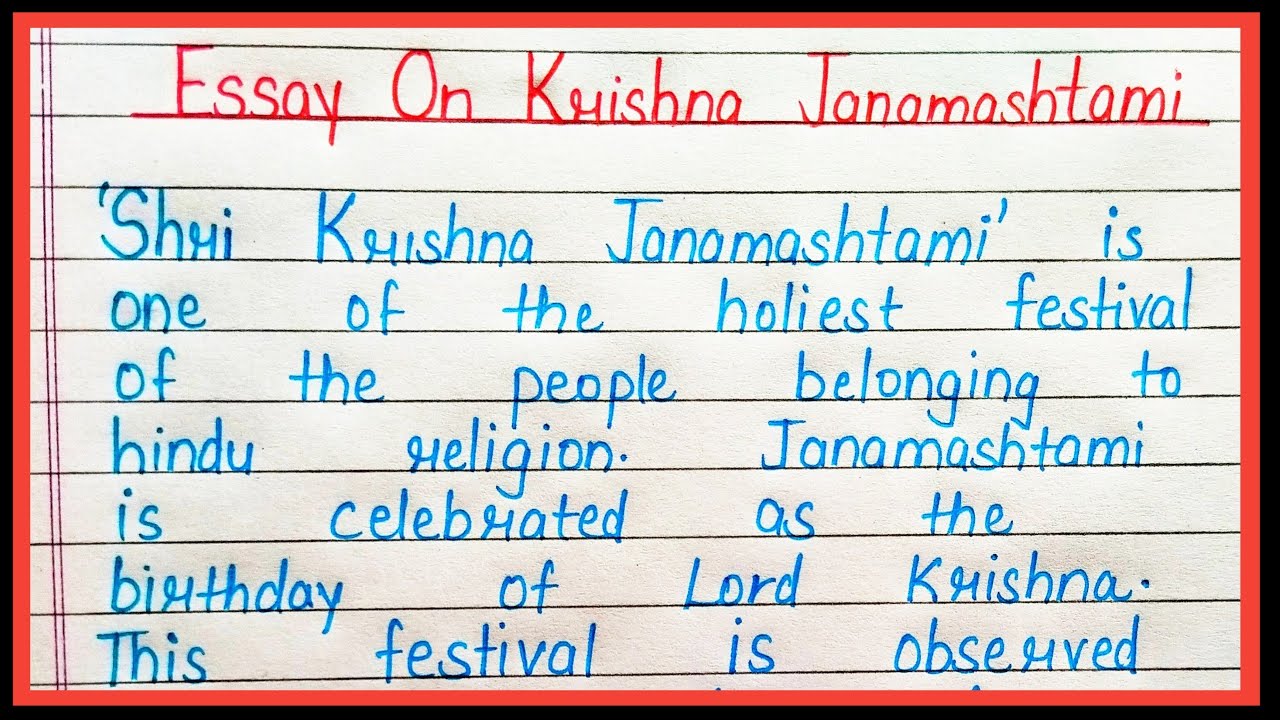 Essay On Krishna Janamashtami
'Shri Krishna Janamashtami' is
one of the holiest festival
of the people belonging to
hindu religion. Janamashtami
is celebrated as the
birthday of Lord Krishna.
This festival is observed